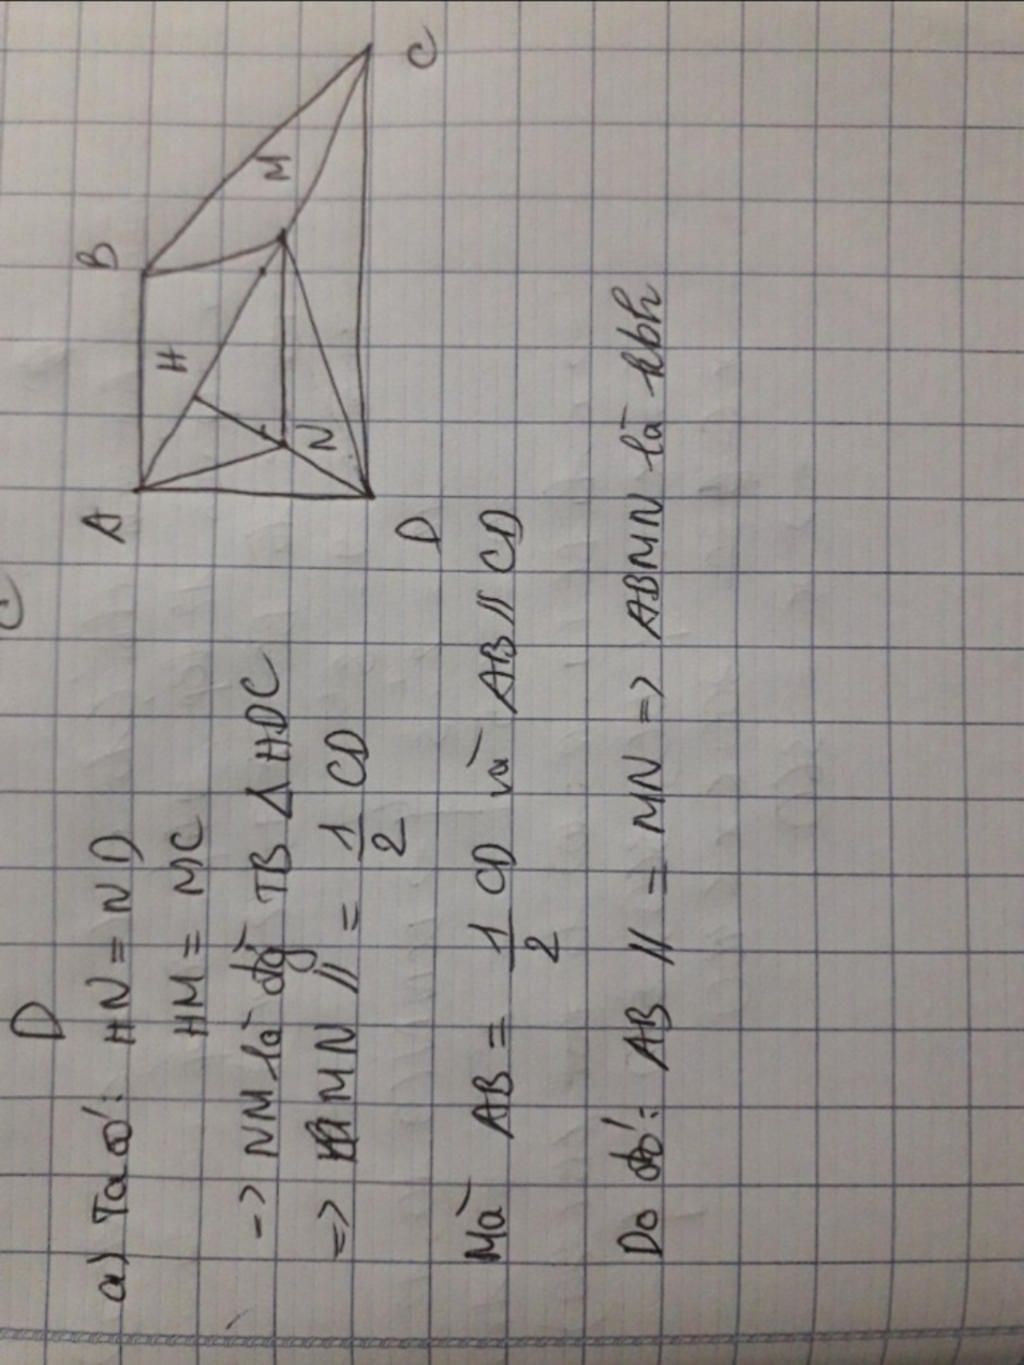 C
D
A
B
H
M
N
D
C
a) Ta có: HN = ND
HM = MC
-> NM là đg TB Δ HDC
=> MN // = 1/2 CD
Mà AB = 1/2 CD và AB // CD
Do đó: AB // = MN => ABMN là hbh